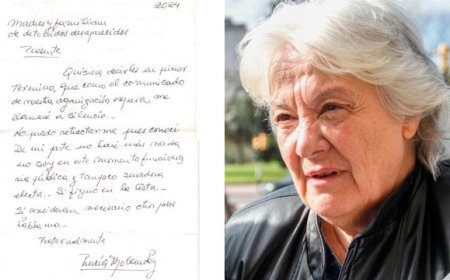 2024
Madres y familiares
de detenidos desaparecidos
Presente
Quisiera decirles en primer
término, que como el comunicado
de nuestra organización expresa, me
llamaré a silencio.-
No puedo retractarme pues conocí
De mi parte no haré más nada
no soy en este momento funciona
ria pública y tampoco senadora
electa.- Si figuro en la lista.-
Si consideran necesario otras
Fraternalmente
Lucía Topolansky